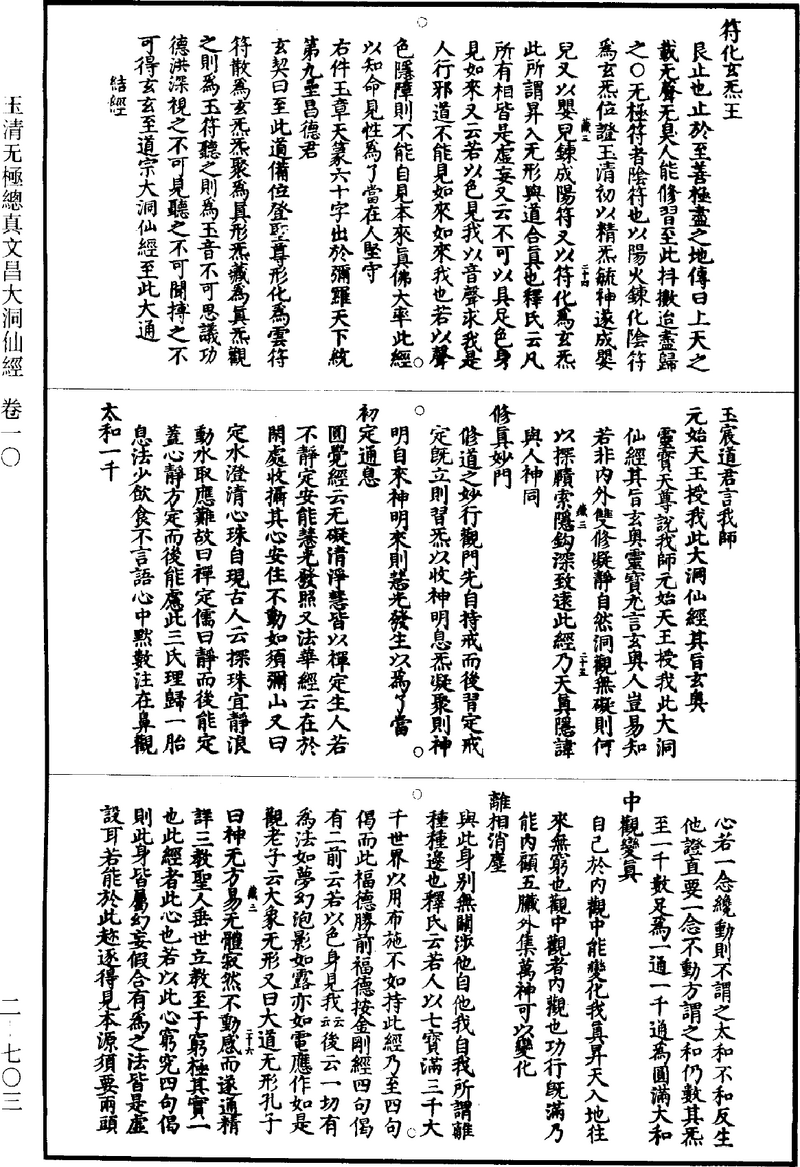 符化玄炁王
艮止也止於至善極盡之地傳曰上天之
載无聲无臭人能修習至此抖擻迨盡歸
之○无極符者陰符也以陽火鍊化陰符
為玄炁位證玉清初以精炁毓神遂成嬰
兒又以嬰兒鍊成陽符又以符化為玄炁
此所謂昇入无形與道合真也釋氏云凡
所有相皆是虛妄又云不可以具足色身
見如來又云若以色見我以音聲求我是
人行邪道不能見如來如來我也若以聲
色隱障則不能自見本來真佛大率此經
以知命見性為了當在人堅守
右件玉章天篆六十字出於彌羅天下統
第九壘昌德君
玄契曰至此道備位登聖尊形化為雲符
符散為玄炁炁聚為真形炁藏為真炁觀
之則為玉符聽之則為玉音不可思議功
德洪深視之不可見聽之不可聞摶之不
可得玄玄至道宗大洞仙經至此大通
結經
玉宸道君言我師
元始天王授我此大洞仙經其旨玄奧
靈寶天尊說我師元始天王授我此大洞
仙經其旨玄奧靈寶尢言玄奧人豈易知
若非内外雙修凝靜自然洞觀無礙則何
以探賾索隱鈎深致遠此經乃天真隱諱
與人神同
修真妙門
修道之妙行觀門先自持戒而後習定戒
定既立則習炁以收神明息炁凝聚則神
明自來神明來則慧光發生以為了當
初定通息
圓覺經云无礙清淨慧皆以禪定生人若
不靜定安能慧光發照又法華經云在於
閑處收攝其心安住不動如須彌山又曰
定水澄清心珠自現古人云探珠宜靜浪
動水取應難故曰禪定儒曰靜而後能定
蓋心靜方定而後能慮此三氏理歸一胎
息法少飲食不言語心中默數注在鼻觀
太和一千
心若一念纔動則不謂之太和不和反生
他證直要一念不動方謂之和仍數其炁
至一千數足為一通一千通為圓滿大和
中觀變真
自己於内觀中能變化我真昇天入地往
來無窮也觀中觀者内觀也功行既滿乃
能内顧五臟外集萬神可以變化
離相消塵
與此身別無關涉他自他我自我所謂離
種種邊也釋氏云若人以七寶滿三千大
千世界以用布施不如持此經乃至四句
偈而此福德勝前福德按金剛經四句偈
有二前云若以色身見我云云後云一切有
為法如夢幻泡影如露亦如電應作如是
觀老子云大象无形又曰大道无形孔子
曰神无方易无體寂然不動感而遂通精
詳三教聖人垂世立教至于窮極其實一
也此經者此心也若以此心窮究四句偈
則此身皆屬幻妄假合有為之法皆是虛
設耳若能於此趂逐得見本源須要兩頭
藏三
二十四
藏三
二十五
藏三
二十六
玉清无極總真文昌大洞仙經 卷一〇
二—七〇三